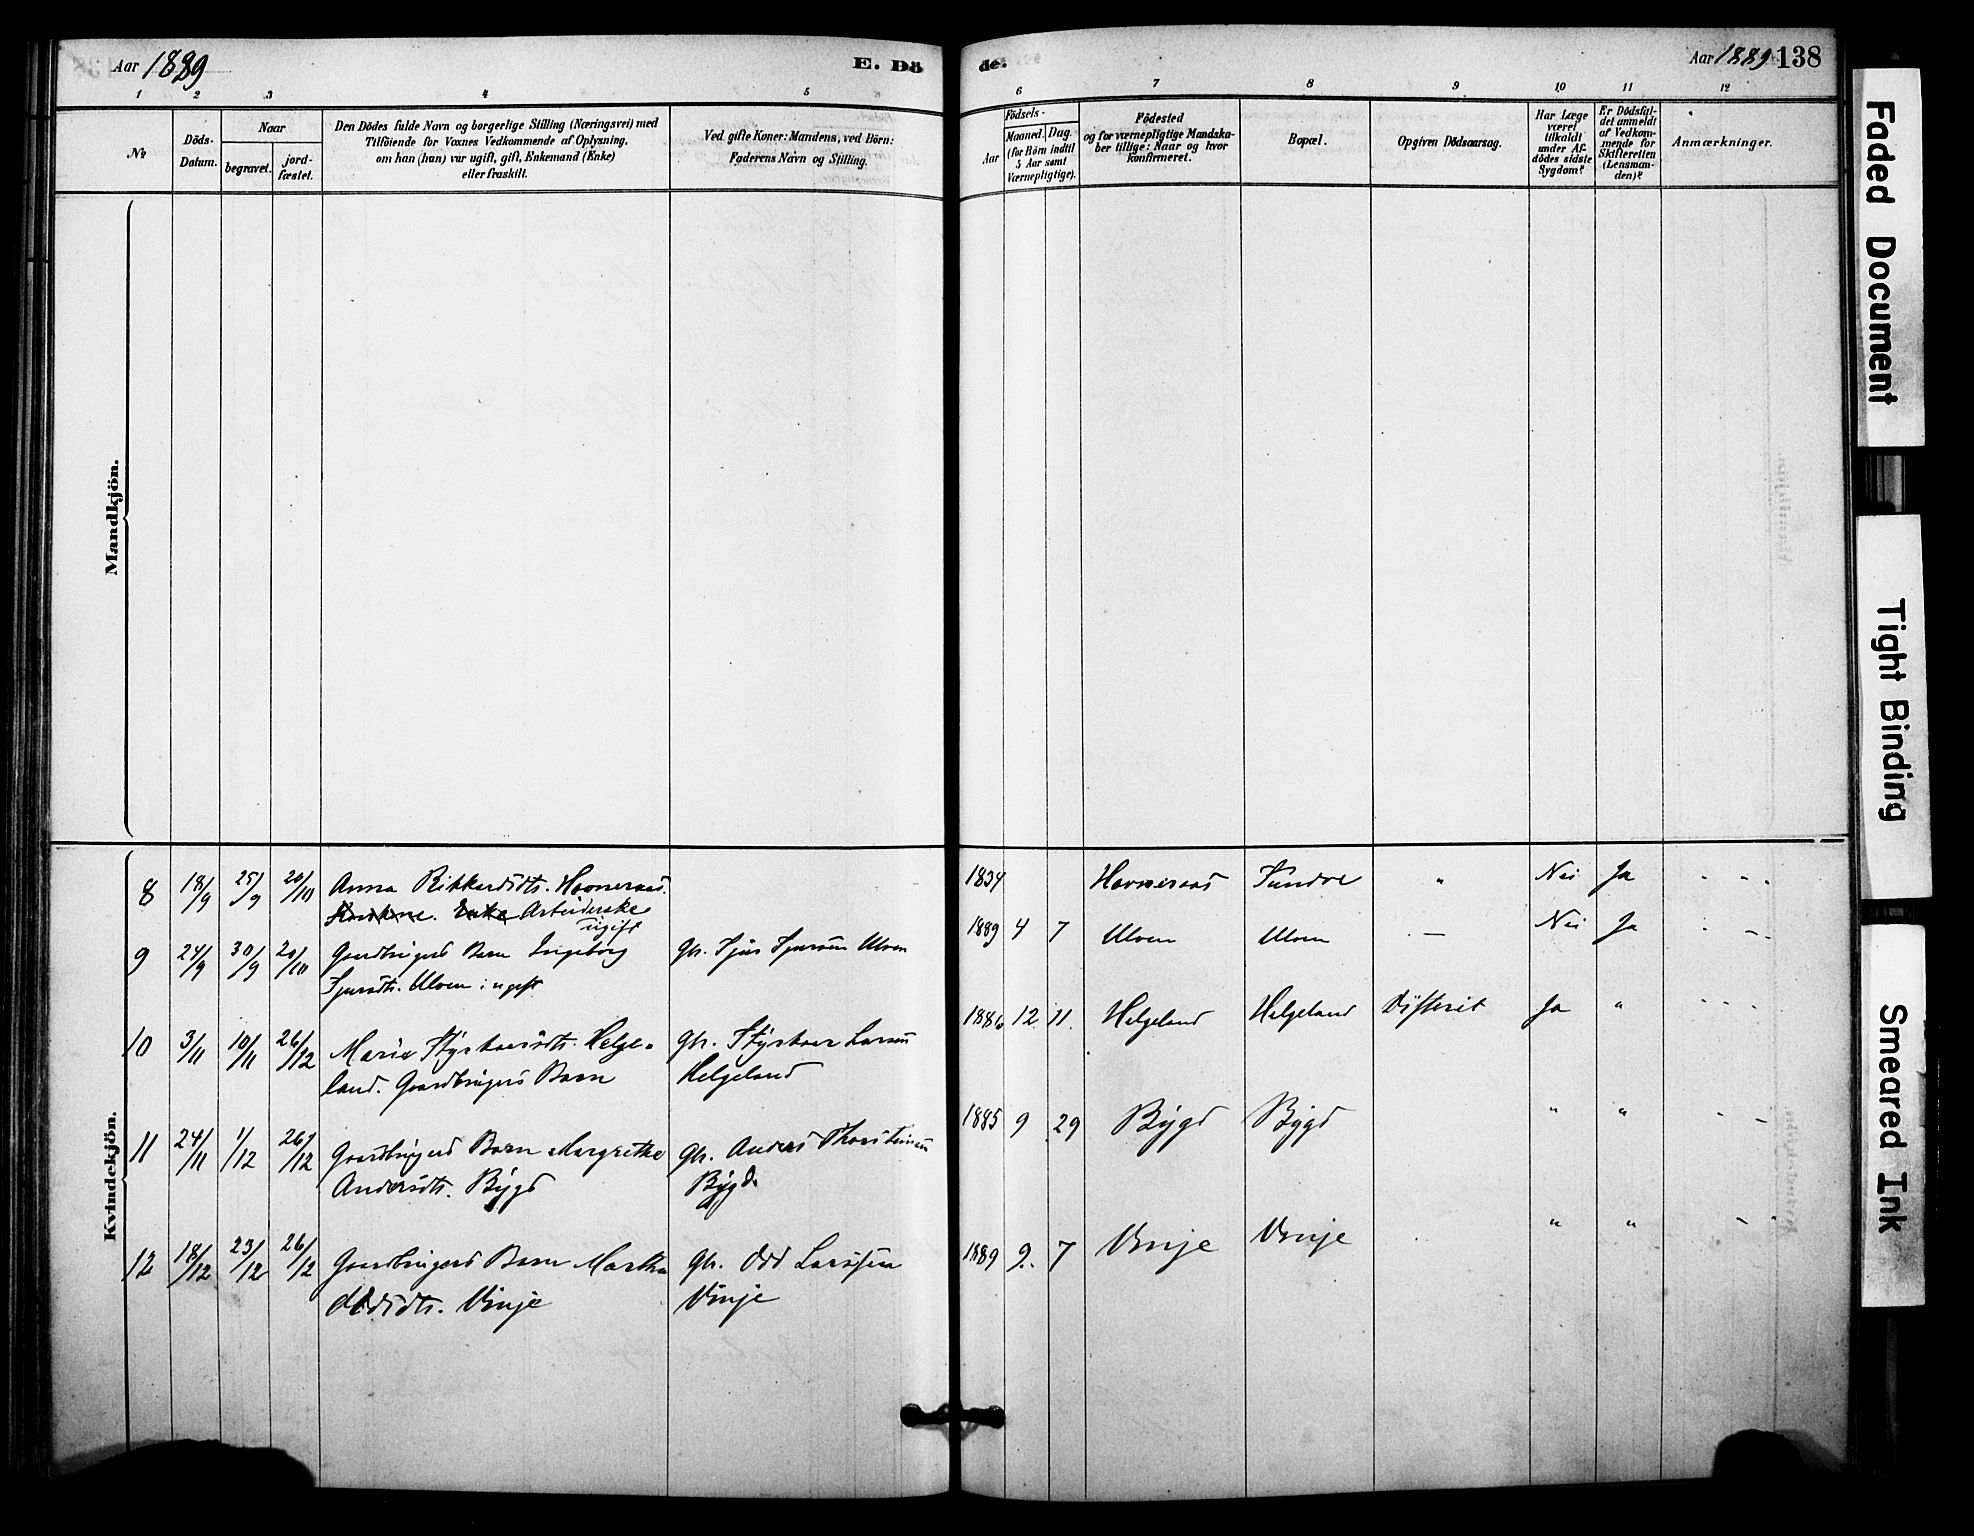 Aar 1889
E. Dö
de.
Aar 1889 138
1 2 3 4 5 6 7 8 9 10 11 12
№
Döds-
Datum.
Naar
begravet.
jord-
fæstet.
Den Dödes fulde Navn og borgerlige Stilling (Næringsvei) med
Tilföiende for Voxnes Vedkommende af Oplysning,
om han (hun) var ugift, gift, Enkemand (Enke)
eller fraskilt.
Ved gifte Koner: Mandens, ved Börn:
Faderens Navn og Stilling.
Födsels-
Aar
Maaned. Dag.
(for Börn indtil
5 Aar samt
Værnepligtige).
Födested
og for værnepligtige Mandska-
ber tillige: Naar og hvor
konfirmeret.
Bopæl.
Opgiven Dödsaarsag.
Har Læge
været
tilkaldt
under Af-
dödes sidste
Sygdom?
Er Dödsfal-
det anmeldt
af Vedkom-
mende for
Skifteretten
(Lensman-
den)?
Anmærkninger.
Mandkjön.
Kvindekjön.
8 18/9 25/9 20/10 Anna Rikkardsdtr. Havneraas. 1834 Havneraas Tundve " Nei Ja - - -
Enke Arbeiderske
ugift
9 24/9 30/9 20/10 Gaardbrugers Barn Ingeborg Gbr. Sjur Sjursen Ulven 1889 4 7 Ulven Ulven — Nei Ja - - -
Sjursdtr. Ulven : ugift
10 3/11 10/11 26/12 Marie Styrkaarsdtr. Helge- Gbr. Styrkaar Larsen 1886 12 11. Helgeland Helgeland Difterit Ja " - - -
land. Gaardbrugers Barn Helgeland
11 24/11 1/12 26/12 Gaardbrugers Barn Margrethe Gbr. Anders Thorsteinsen 1885 9 29 Bygd Bygd " " - -
Andersdtr. Bygd Bygd.
12 18/12 23/12 26/12 Gaardbrugers Barn Martha Gbr. Odd Larssen 1889 9. 7 Vinje Vinje " " - -
Oddsdtr. Vinje Vinje
Faded Document
Tight Binding
Smeared Ink